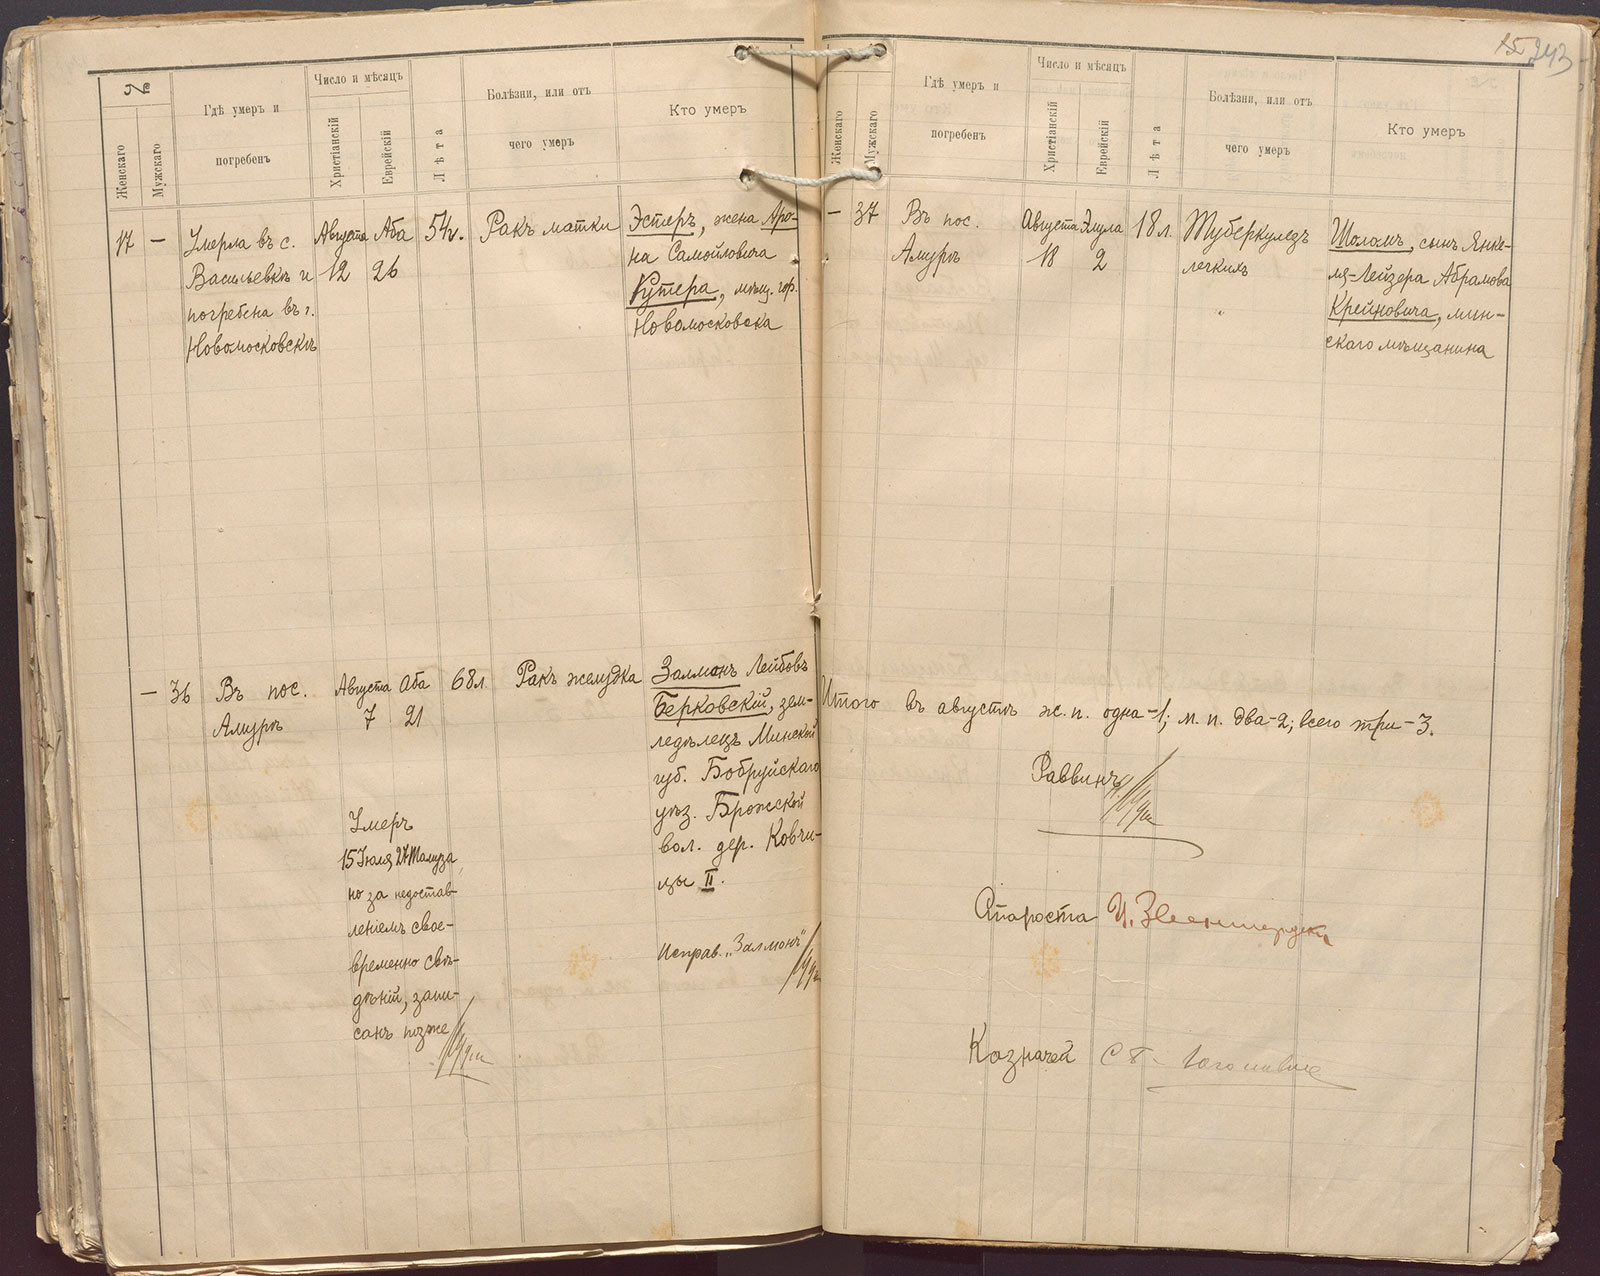 №
Женскаго
Мужскаго
Гдѣ умеръ и
погребенъ
Число и мѣсяцъ
Христіанскій
Еврейскій
Лѣта
Болѣзни, или отъ
чего умеръ
Кто умеръ
17
—
Умерла въ с.
Васильевкѣ и
погребена въ г.
Новомосковскѣ
Августа
12
Аба
26
54г.
Ракъ матки
Эстеръ, жена Аро-
на Самойловича
Кутера, мѣщ. гор.
Новомосковска
—
36
Въ пос.
Амурѣ
Августа
7
Аба
21
Умеръ
15 Іюля, 27 Тамуза,
но за недостав-
леніемъ свое-
временно свѣ-
дѣній, запи-
санъ позже
68л.
Ракъ желудка
Залманъ Лейбовъ
Берковскій, зем-
ледѣлецъ Минской
губ. Бобруйскаго
уѣз. Брожской
вол. дер. Ковчи-
цы II.
Исправ. „Залманъ“
243
Женскаго
Мужскаго
Гдѣ умеръ и
погребенъ
Число и мѣсяцъ
Христіанскій
Еврейскій
Лѣта
Болѣзни, или отъ
чего умеръ
Кто умеръ
—
37
Въ пос.
Амурѣ
Августа
18
Элула
2
18л.
Туберкулезъ
легкихъ
Шоломъ, сынъ Янке-
ля-Лейзера Абрамова
Крейновича, мин-
скаго мѣщанина
Итого въ августѣ ж. п. одна-1; м. п. два-2; всего три-3.
Раввинъ
Староста
Казначей